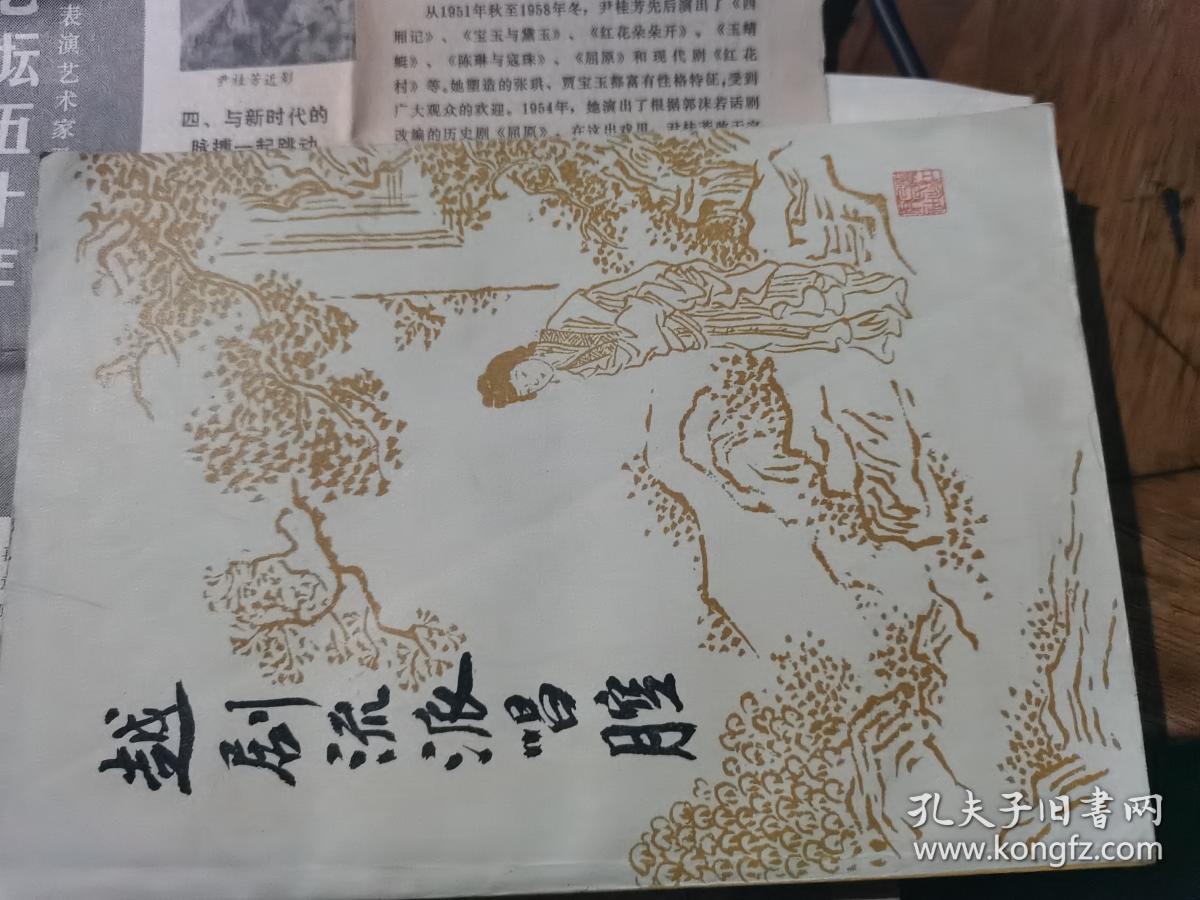 表演艺术家
坛五十年
尹桂芳近影
四、与新时代的
脉搏一起跳动
从1951年秋至1958年冬，尹桂芳先后演出了《西
厢记》、《宝玉与黛玉》、《红花朵朵开》、《玉蜻
蜓》、《陈琳与寇珠》、《屈原》和现代剧《红花
村》等。她塑造的张珙、贾宝玉都富有性格特征，受到
广大观众的欢迎。1954年，她演出了根据郭沫若话剧
改编的历史剧《屈原》。在这出戏里，尹桂芳敢于突
越剧流派唱腔
孔夫子旧书网
www.kongfz.com